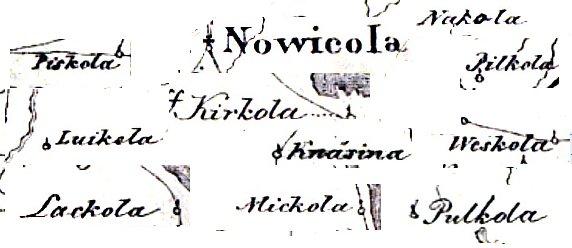 Nakola
Nowicola
Piskola
Pilkola
f. Kirkola
Luikola
Knäsina
Weskola
Lackola
Mickola
Pulkola